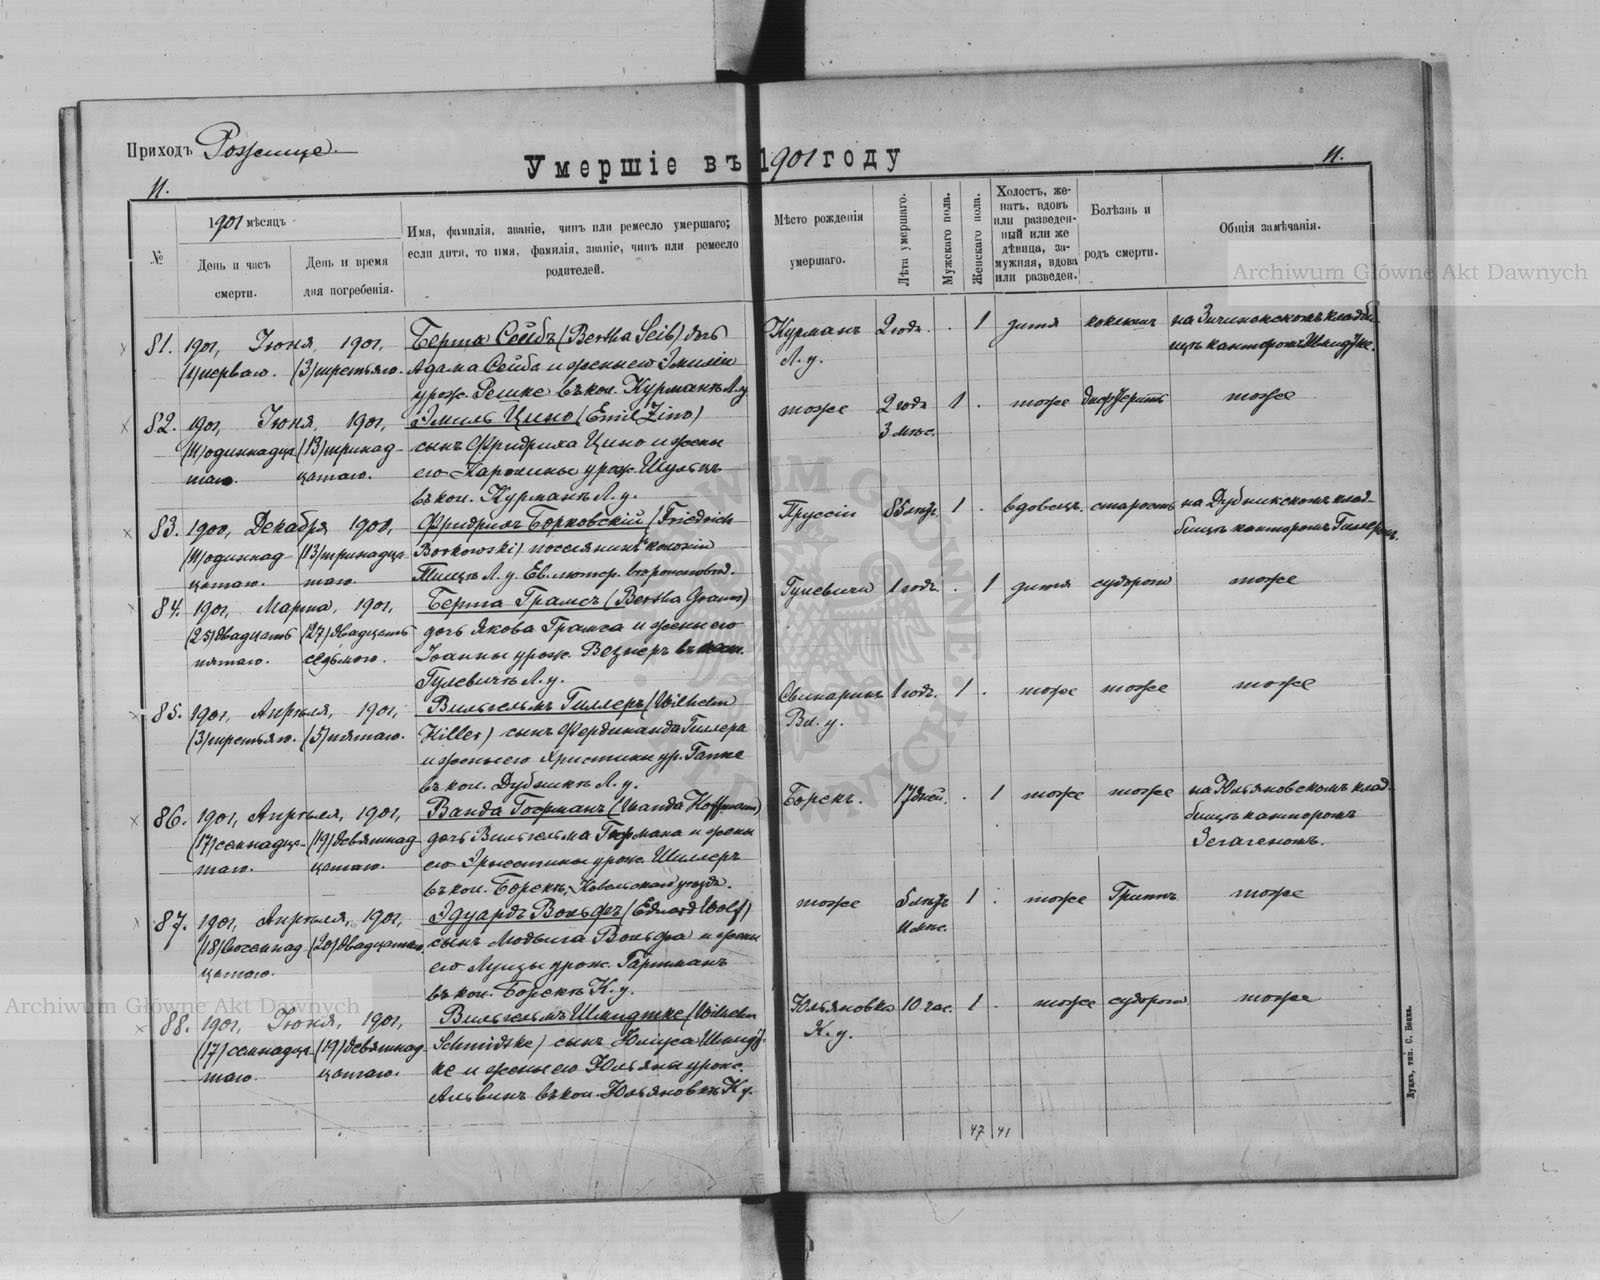 Приходъ Рожище.
Умершіе въ 1901 году
11.
11.
№
1901 мѣсяцъ
День и часъ смерти.
День и время дня погребенія.
Имя, фамилія, званіе, чинъ или ремесло умершаго;
если дитя, то имя, фамилія, званіе, чинъ или ремесло
родителей.
Мѣсто рожденія
умершаго.
Лѣта умершаго.
Мужскаго пола.
Женскаго пола.
Холостъ, же-
натъ, вдовъ
или разведен-
ный или же
дѣвица, за-
мужняя, вдова
или разведен.
Болѣзнь и
родъ смерти.
Общія замѣчанія.
81. 1901, Іюня, 1901, Берта Сейбъ (Bertha Seib) дочь Курманъ 2 года . 1 дитя коклюшъ на кладби-
(1) перваго. (3) третьяго. Адама Сейба и жены его Эмиліи Л. у. щѣ канторомъ Шмидтке.
урож. Решке въ кол. Курманъ Л. у.
82. 1901, Іюня, 1901, Эмиль Цино (Emil Zino) тоже 2 года 1 . тоже дифтеритъ тоже
(11) одиннадца- (13) тринад- сынъ Фридриха Цино и жены 3 мѣс.
таго. цатаго. его Каролины урож. Шульцъ
въ кол. Курманъ Л. у.
83. 1900, Декабря, 1900, Фридрихъ Борковскій (Friedrich Пруссіи 85 лѣтъ 1 . вдовецъ. старость на Дубникскомъ клад-
(11) одиннад- (13) тринадца- Borkowski) поселянинъ колоніи бищѣ канторомъ Гиллеромъ.
цатаго. таго. Л. у. Ев. лютер. вѣроисповѣд.
84. 1901, Марта, 1901, Берта Грамсъ (Bertha Grams) Гулевичи 1 годъ. . 1 дитя судороги тоже
(25) двадцать (27) двадцать дочь Якова Грамса и жены его
пятаго. седьмого. Іоанны урож. Везнеръ въ кол.
Гулевичъ Л. у.
85. 1901, Апрѣля, 1901, Вильгельмъ Гиллеръ (Wilhelm Свинаринъ 1 годъ. 1 . тоже тоже тоже
(3) третьяго. (5) пятаго. Hiller) сынъ Фердинанда Гиллера Вл. у.
и жены его Христины ур. Гапке
въ кол. Дубникъ Л. у.
86. 1901, Апрѣля, 1901, Ванда Гофманъ (Wanda Hoffmann) Борекъ. 17 дней. . 1 тоже тоже на Юльяновскомъ клад-
(17) семнадца- (19) девятнад- дочь Вильгельма Гофмана и жены бищѣ канторомъ
таго. цатаго. его Эрнестины урож. Шиллеръ Зегагеномъ.
въ кол. Борекъ, Ковельскаго уѣзда.
87. 1901, Апрѣля, 1901, Эдуардъ Вольфъ (Eduard Wolf) тоже 1 . тоже Гриппъ тоже
(18) восемнад- (20) двадцатаго. сынъ Людвига Вольфа и жены 11 мѣс.
цатаго. его Луизы урож. Гартманъ
въ кол. Борекъ К. у.
88. 1901, Іюня, 1901, Вильгельмъ Шмидтке (Wilhelm Юльяновка 10 час. 1 . тоже судороги тоже
(17) семнадца- (19) девятнад- Schmidtke) сынъ Юліуса Шмидт- К. у.
таго. цатаго. ке и жены его Юльяны урож.
Альвинъ въ кол. Юльяновкѣ К. у.
47 41
Луцкъ, тип. С. Бокка.
Archiwum Główne Akt Dawnych
Archiwum Główne Akt Dawnych